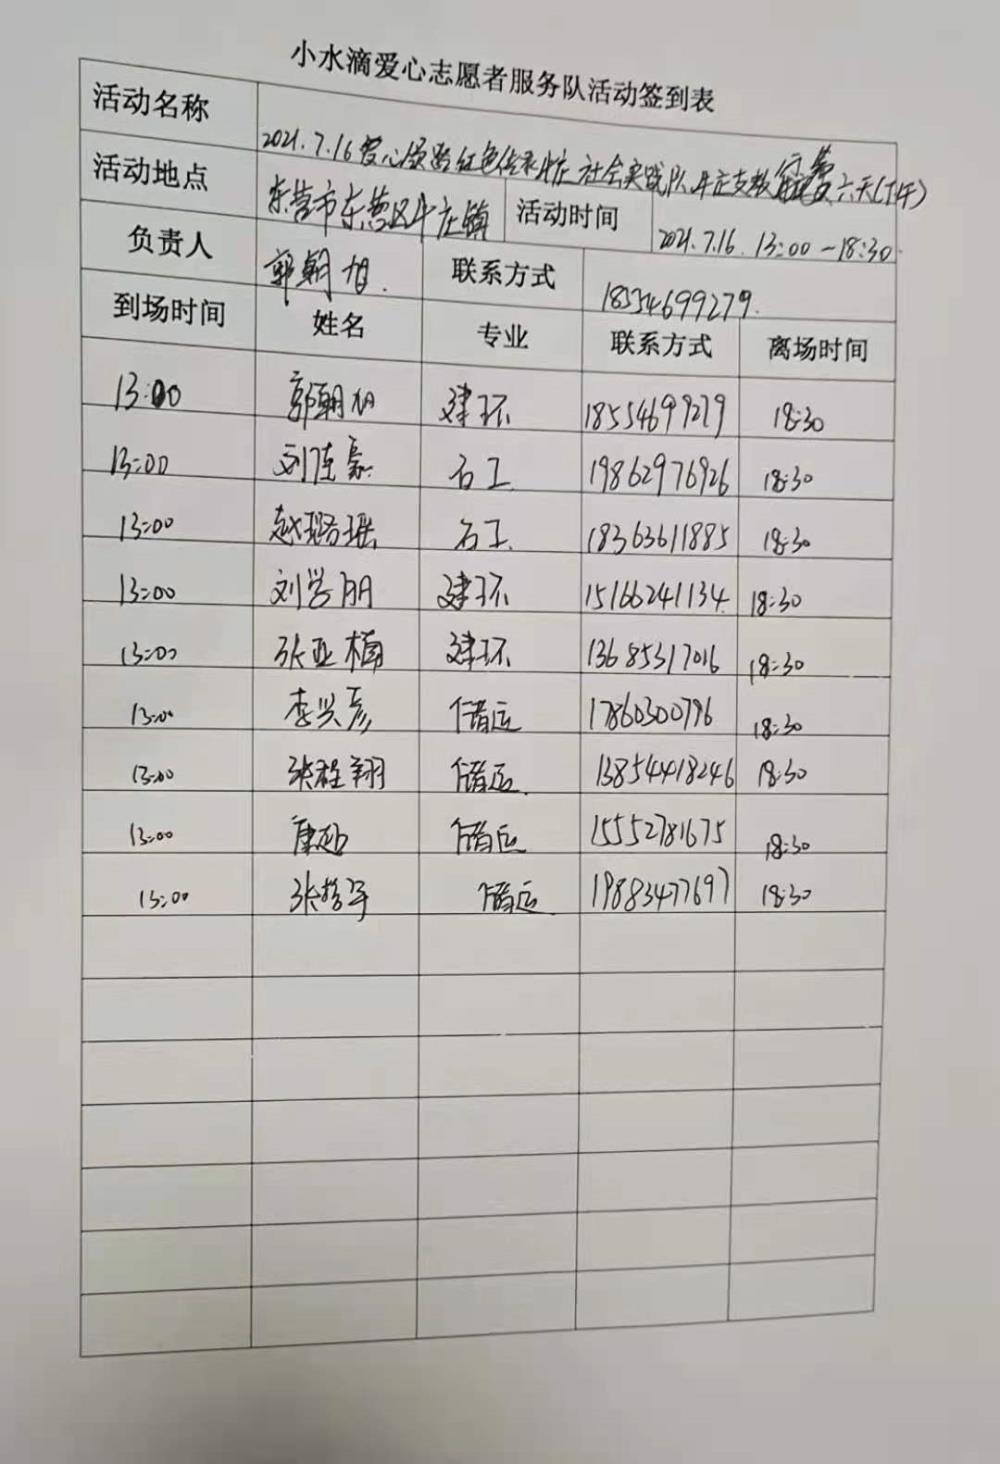 小水滴爱心志愿者服务队活动签到表
活动名称 2021.7.16爱心 红色 社会实践队 支教 六天(下午)
活动地点 东营市东营区牛庄镇 活动时间 2021.7.16. 13:00-18:30.
负责人 郭朝旭. 联系方式 18554699279.
到场时间 姓名 专业 联系方式 离场时间
13:00 郭朝旭 建环 18554699279 18:30
13:00 刘 豪 石工 19862976926 18:30
13:00 赵璐瑶 石工 18363611885 18:30
13:00 刘学朋 建环 15166241134 18:30
13:00 张亚楠 建环 13685317016 18:30
13:00 李兴彦 储运 17860300796 18:30
13:00 张程翔 储运 13854418246 18:30
13:00 康 储运 15552781675 18:30
13:00 张 储运 19883477697 18:30